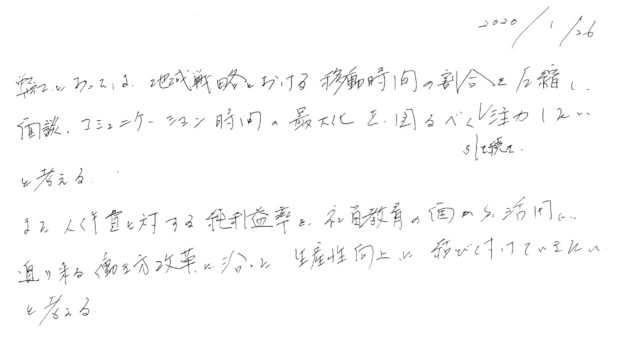 2020/1/26
弊社においては、地域戦略における移動時間の割合を圧縮し、
面談、コミュニケーション時間の最大化を図るべく注力したい
引き続き
と考える。
また人件費に対する純利益率を、社員教育の面から活用し、
迫り来る働き方改革に沿った生産性向上に結び付けていきたい
と考える